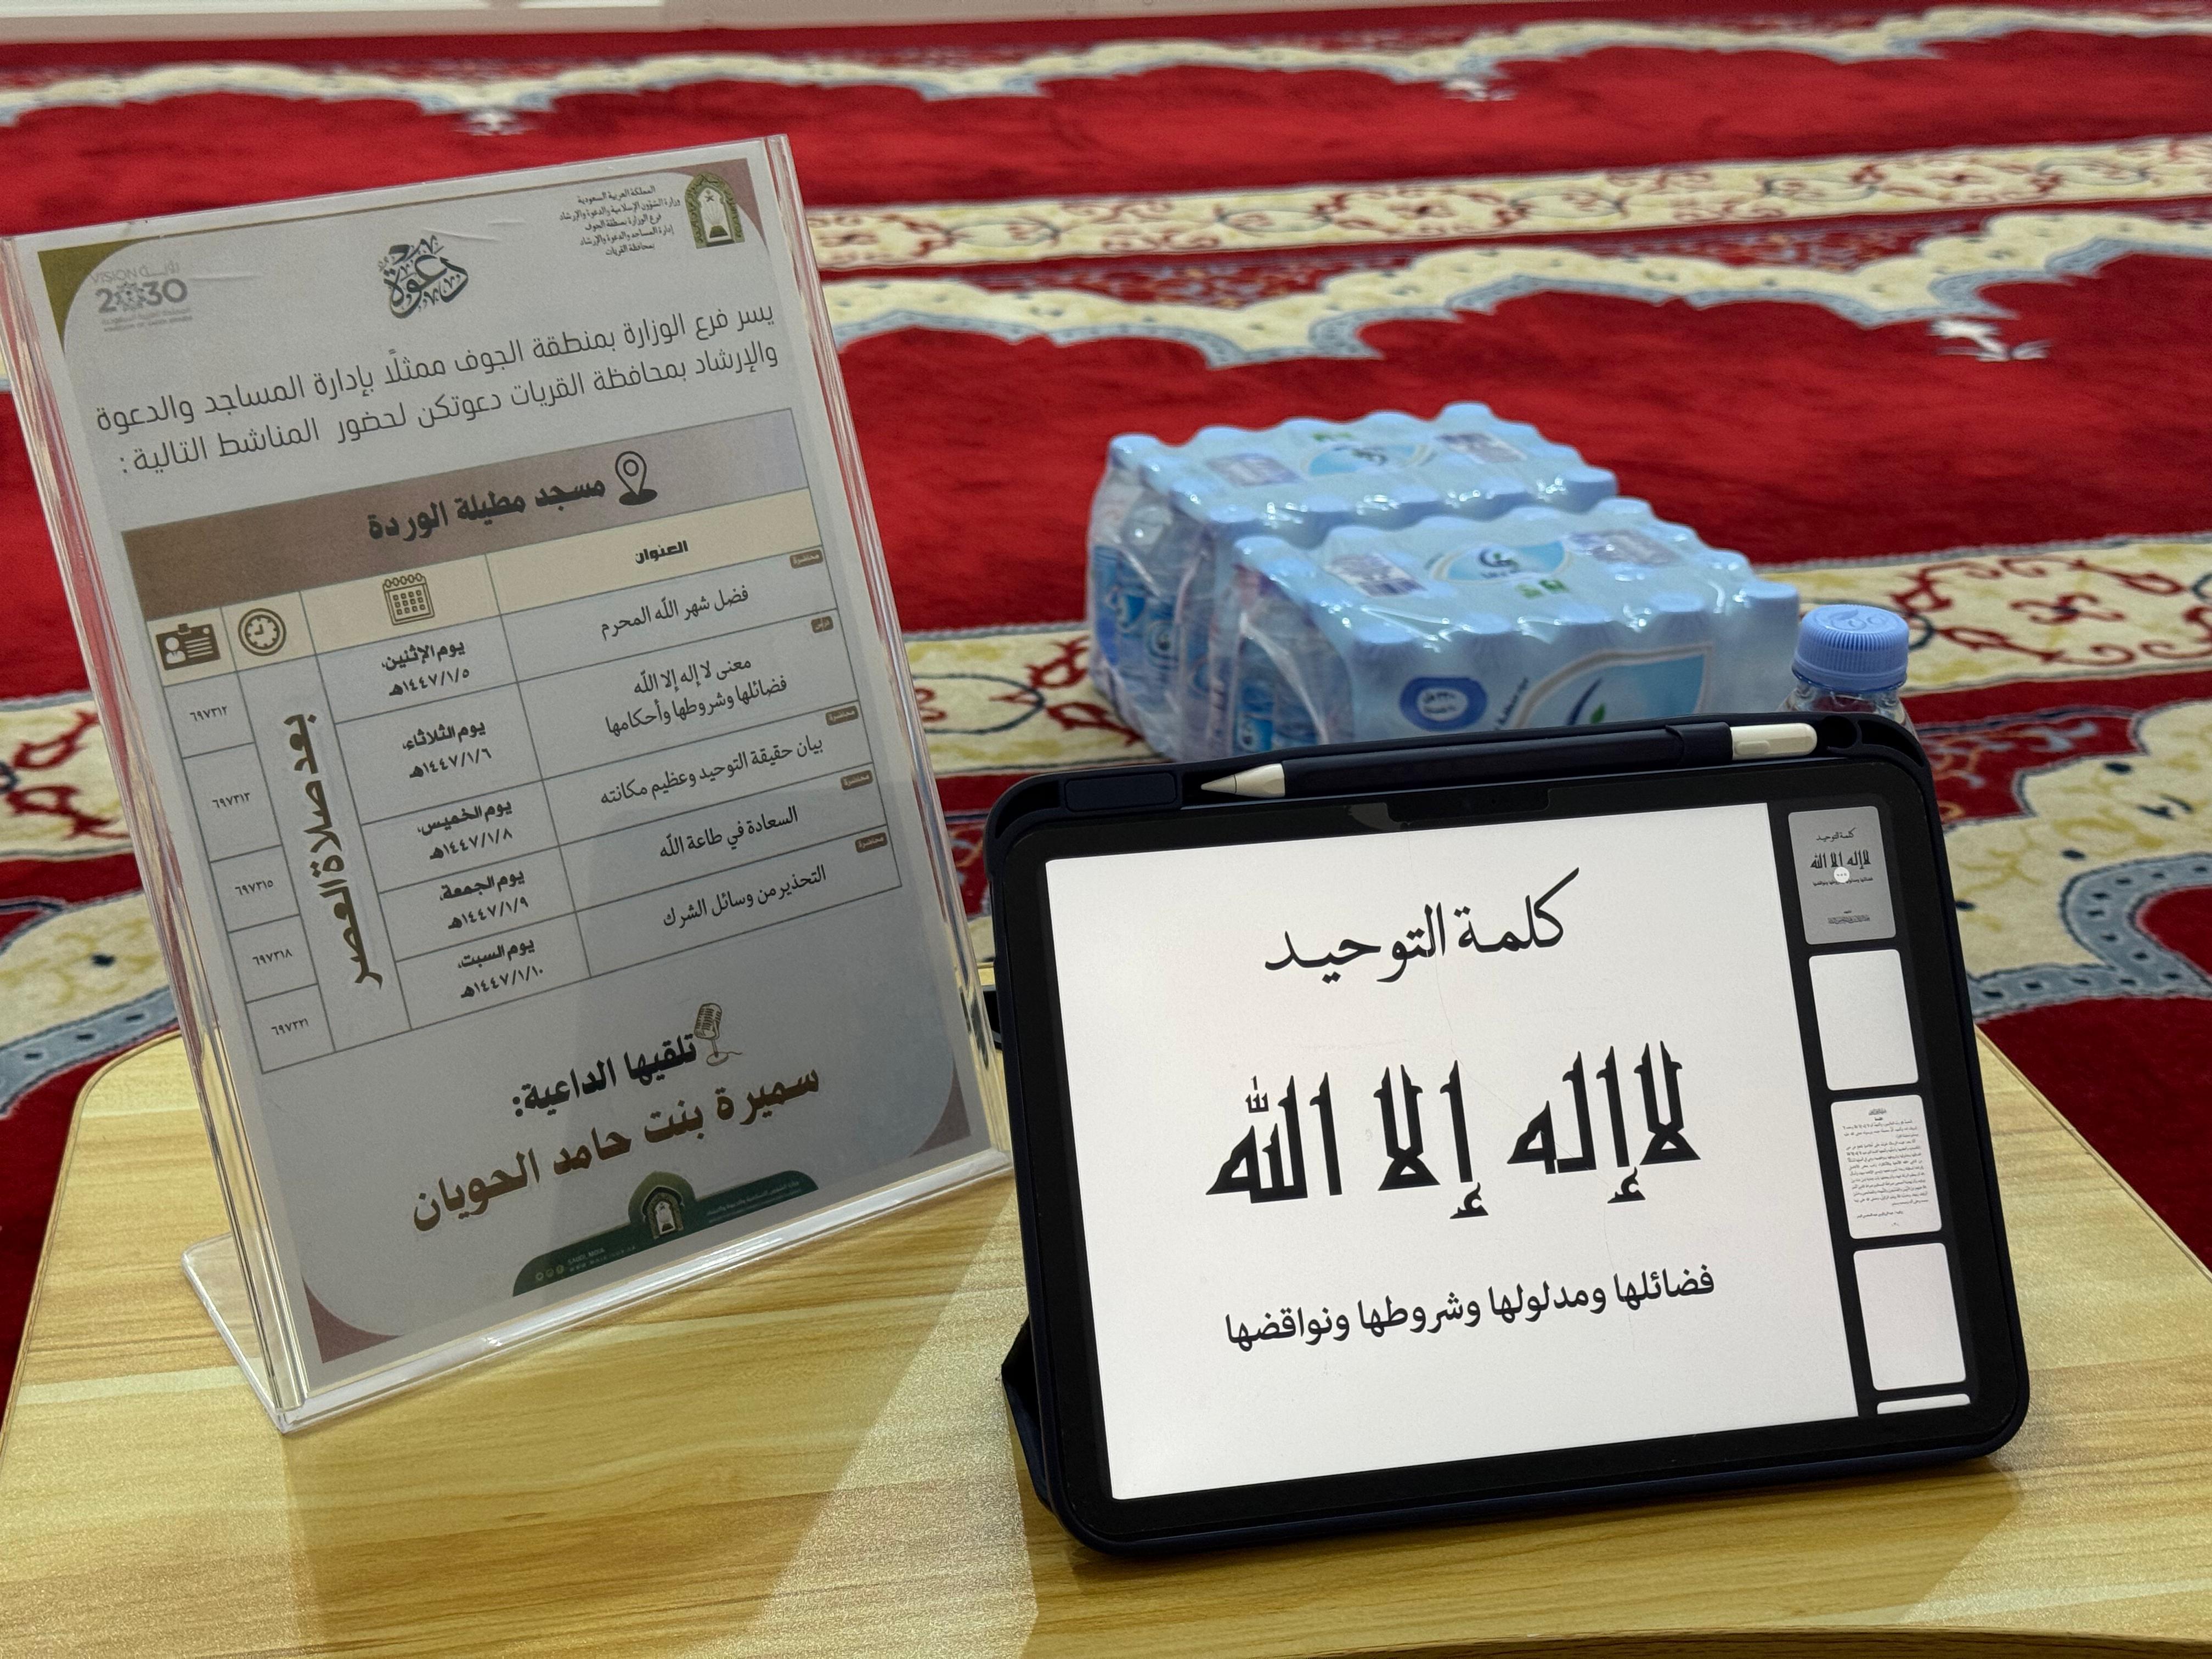 المملكة العربية السعودية
وزارة الشؤون الإسلامية والدعوة والإرشاد
فرع الوزارة بمنطقة الجوف
إدارة المساجد والدعوة والإرشاد
بمحافظة القريات
دعوة
VISION رؤيـــة
2030
المملكة العربية السعودية
KINGDOM OF SAUDI ARABIA
يسر فرع الوزارة بمنطقة الجوف ممثلًا بإدارة المساجد والدعوة
والإرشاد بمحافظة القريات دعوتكن لحضور المناشط التالية :
مسجد مطيلة الوردة
العنوان
محاضرة
فضل شهر الله المحرم
يوم الإثنين،
١٤٤٧/١/٥هـ
٦٩٧٣١٢
درس
معنى لا إله إلا الله
فضائلها وشروطها وأحكامها
يوم الثلاثاء،
١٤٤٧/١/٦هـ
٦٩٧٣١٣
محاضرة
بيان حقيقة التوحيد وعظيم مكانته
يوم الخميس،
١٤٤٧/١/٨هـ
٦٩٧٣١٥
محاضرة
السعادة في طاعة الله
يوم الجمعة،
١٤٤٧/١/٩هـ
٦٩٧٣١٨
محاضرة
التحذير من وسائل الشرك
يوم السبت،
١٤٤٧/١/١٠هـ
٦٩٧٣٢١
بعد صلاة العصر
تلقيها الداعية:
سميرة بنت حامد الحويان
كلمة التوحيد
لا إله إلا الله
فضائلها ومدلولها وشروطها ونواقضها
كلمة التوحيد
لا إله إلا الله